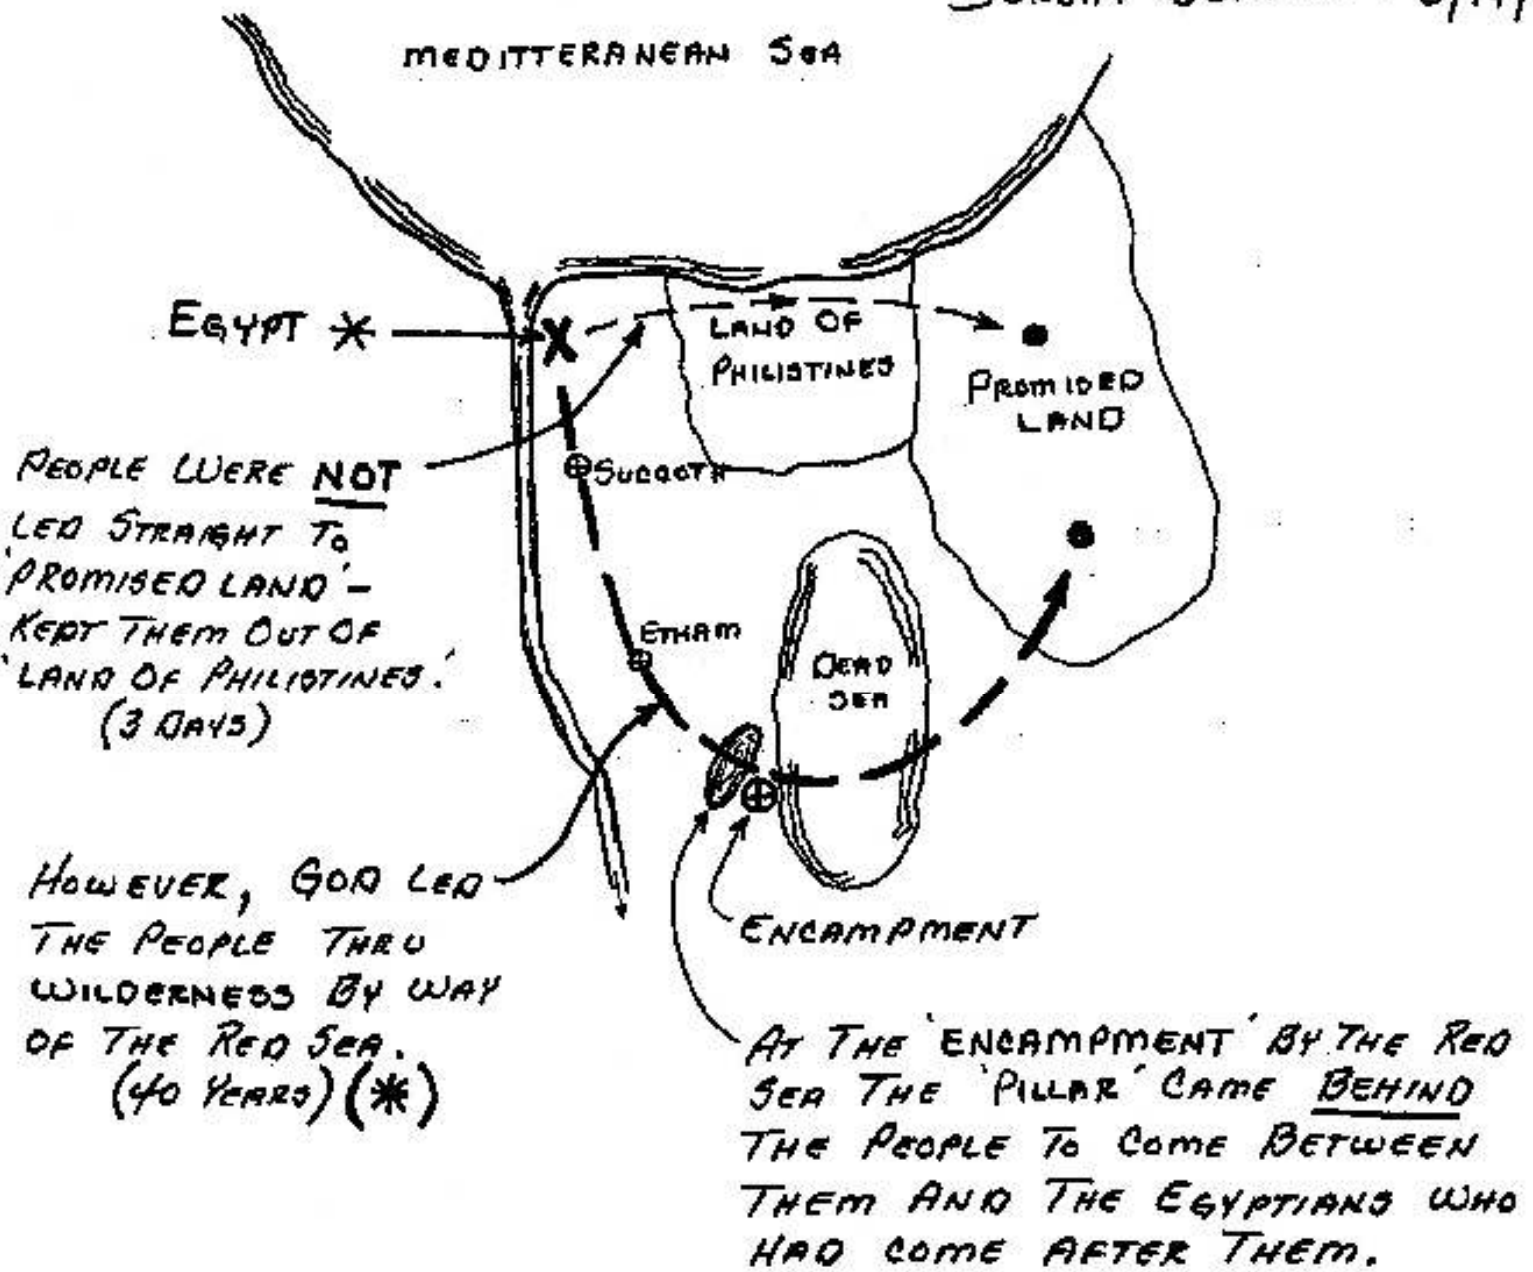 MEDITTERANEAN SEA
EGYPT *
X
LAND OF
PHILISTINES
PROMISED
LAND
PEOPLE WERE NOT
LED STRAIGHT TO
'PROMISED LAND' -
KEPT THEM OUT OF
'LAND OF PHILISTINES.'
(3 DAYS)
SUCCOTH
ETHAM
DEAD
SEA
HOWEVER, GOD LED
THE PEOPLE THRU
WILDERNESS BY WAY
OF THE RED SEA.
(40 YEARS) (*)
ENCAMPMENT
AT THE 'ENCAMPMENT' BY THE RED
SEA THE 'PILLAR' CAME BEHIND
THE PEOPLE TO COME BETWEEN
THEM AND THE EGYPTIANS WHO
HAD COME AFTER THEM.